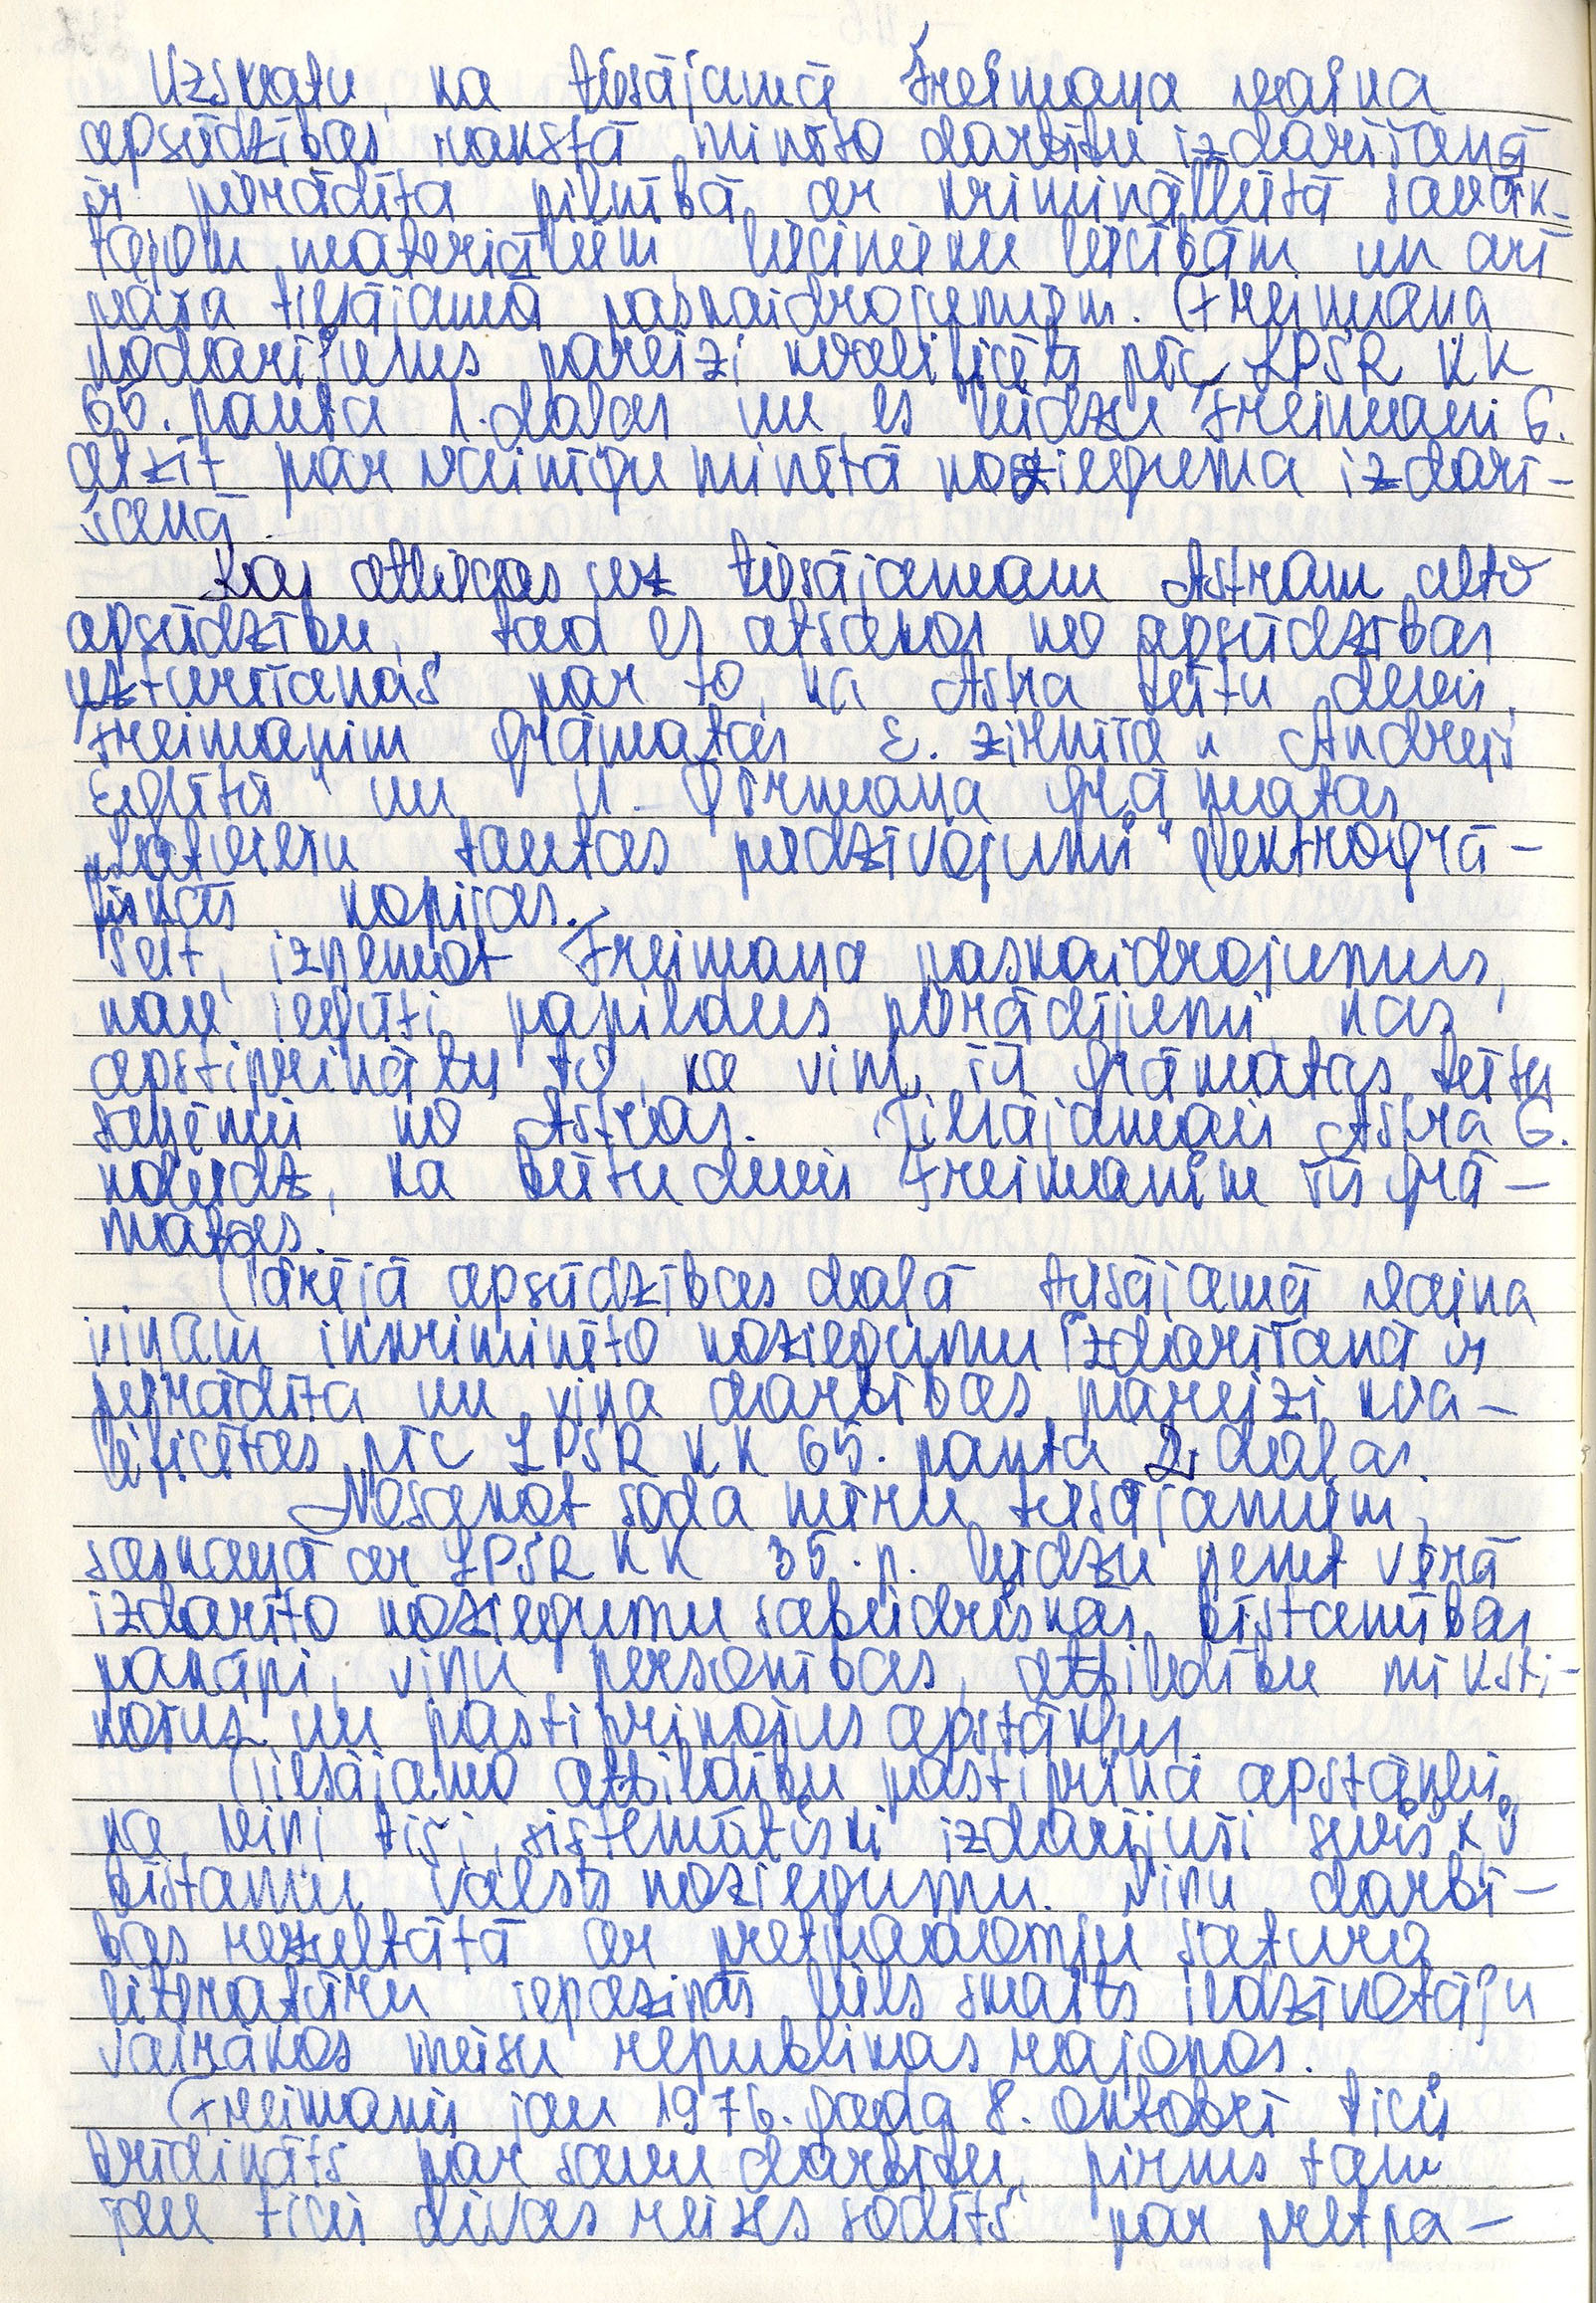 Uzskatu, ka tiesājamā Freimaņa vaina
apsūdzības rakstā minēto darbību izdarīšanā
ir pierādīta pilnībā ar krimināllietā savāk-
tajiem materiāliem, liecinieku liecībām un arī
paša tiesājamā paskaidrojumiem. Freimaņa
nodarījums pareizi kvalificēts pēc LPSR KK
65. panta 1. daļas un es lūdzu Freimani G.
atzīt par vainīgu minētā nozieguma izdarī-
šanā.
Kas attiecas uz tiesājamam Astram celto
apsūdzību, tad es atsakos no apsūdzības
uzturēšanas par to, ka Astra būtu devis
Freimanim grāmatas E. Zirnīša „Andrejs
Eglītis" un U. Ģērmaņa grāmatas
„Latviešu tautas piedzīvojumi" elektrogrā-
fiskās kopijas.
Šeit, izņemot Freimaņa paskaidrojumus,
nav iegūti papildus pierādījumi, kas
apstiprinātu to, ka viņš šīs grāmatas būtu
saņēmis no Astras. Tiesājamais Astra G.
noliedz, ka būtu devis Freimanim šīs grā-
matas.
Pārējā apsūdzības daļā tiesājamā vaina
viņam inkriminēto noziegumu izdarīšanā ir
pierādīta un viņa darbības pareizi kva-
lificētas pēc LPSR KK 65. panta 2. daļas.
Nosakot soda mēru tiesājamiem,
saskaņā ar LPSR KK 35. p. lūdzu ņemt vērā
izdarīto noziegumu sabiedriskās bīstamības
pakāpi, viņu personības, atbildību mīksti-
nošus un pastiprinošus apstākļus.
Tiesājamo atbildību pastiprina apstāklis,
ka viņi tīši, sistemātiski izdarījuši sevišķi
bīstamu valsts noziegumu. Viņu darbī-
bas rezultātā ar pretpadomju satura
literatūru iepazinās liels skaits iedzīvotāju
vairākos mūsu republikas rajonos.
Freimanis jau 1976. gada 8. oktobrī ticis
brīdināts par savu darbību, pirms tam
jau ticis divas reizes sodīts par pretpa-